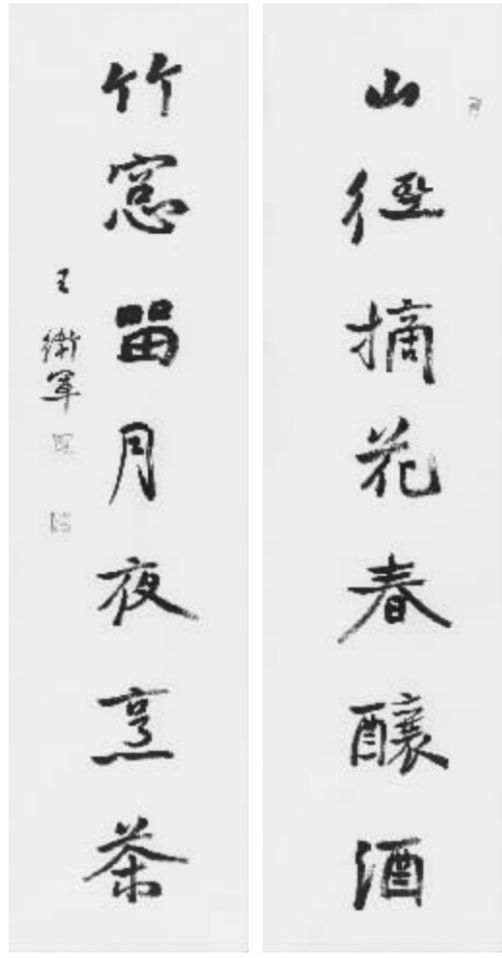 山徑摘花春釀酒
竹窓留月夜烹茶
王衛軍